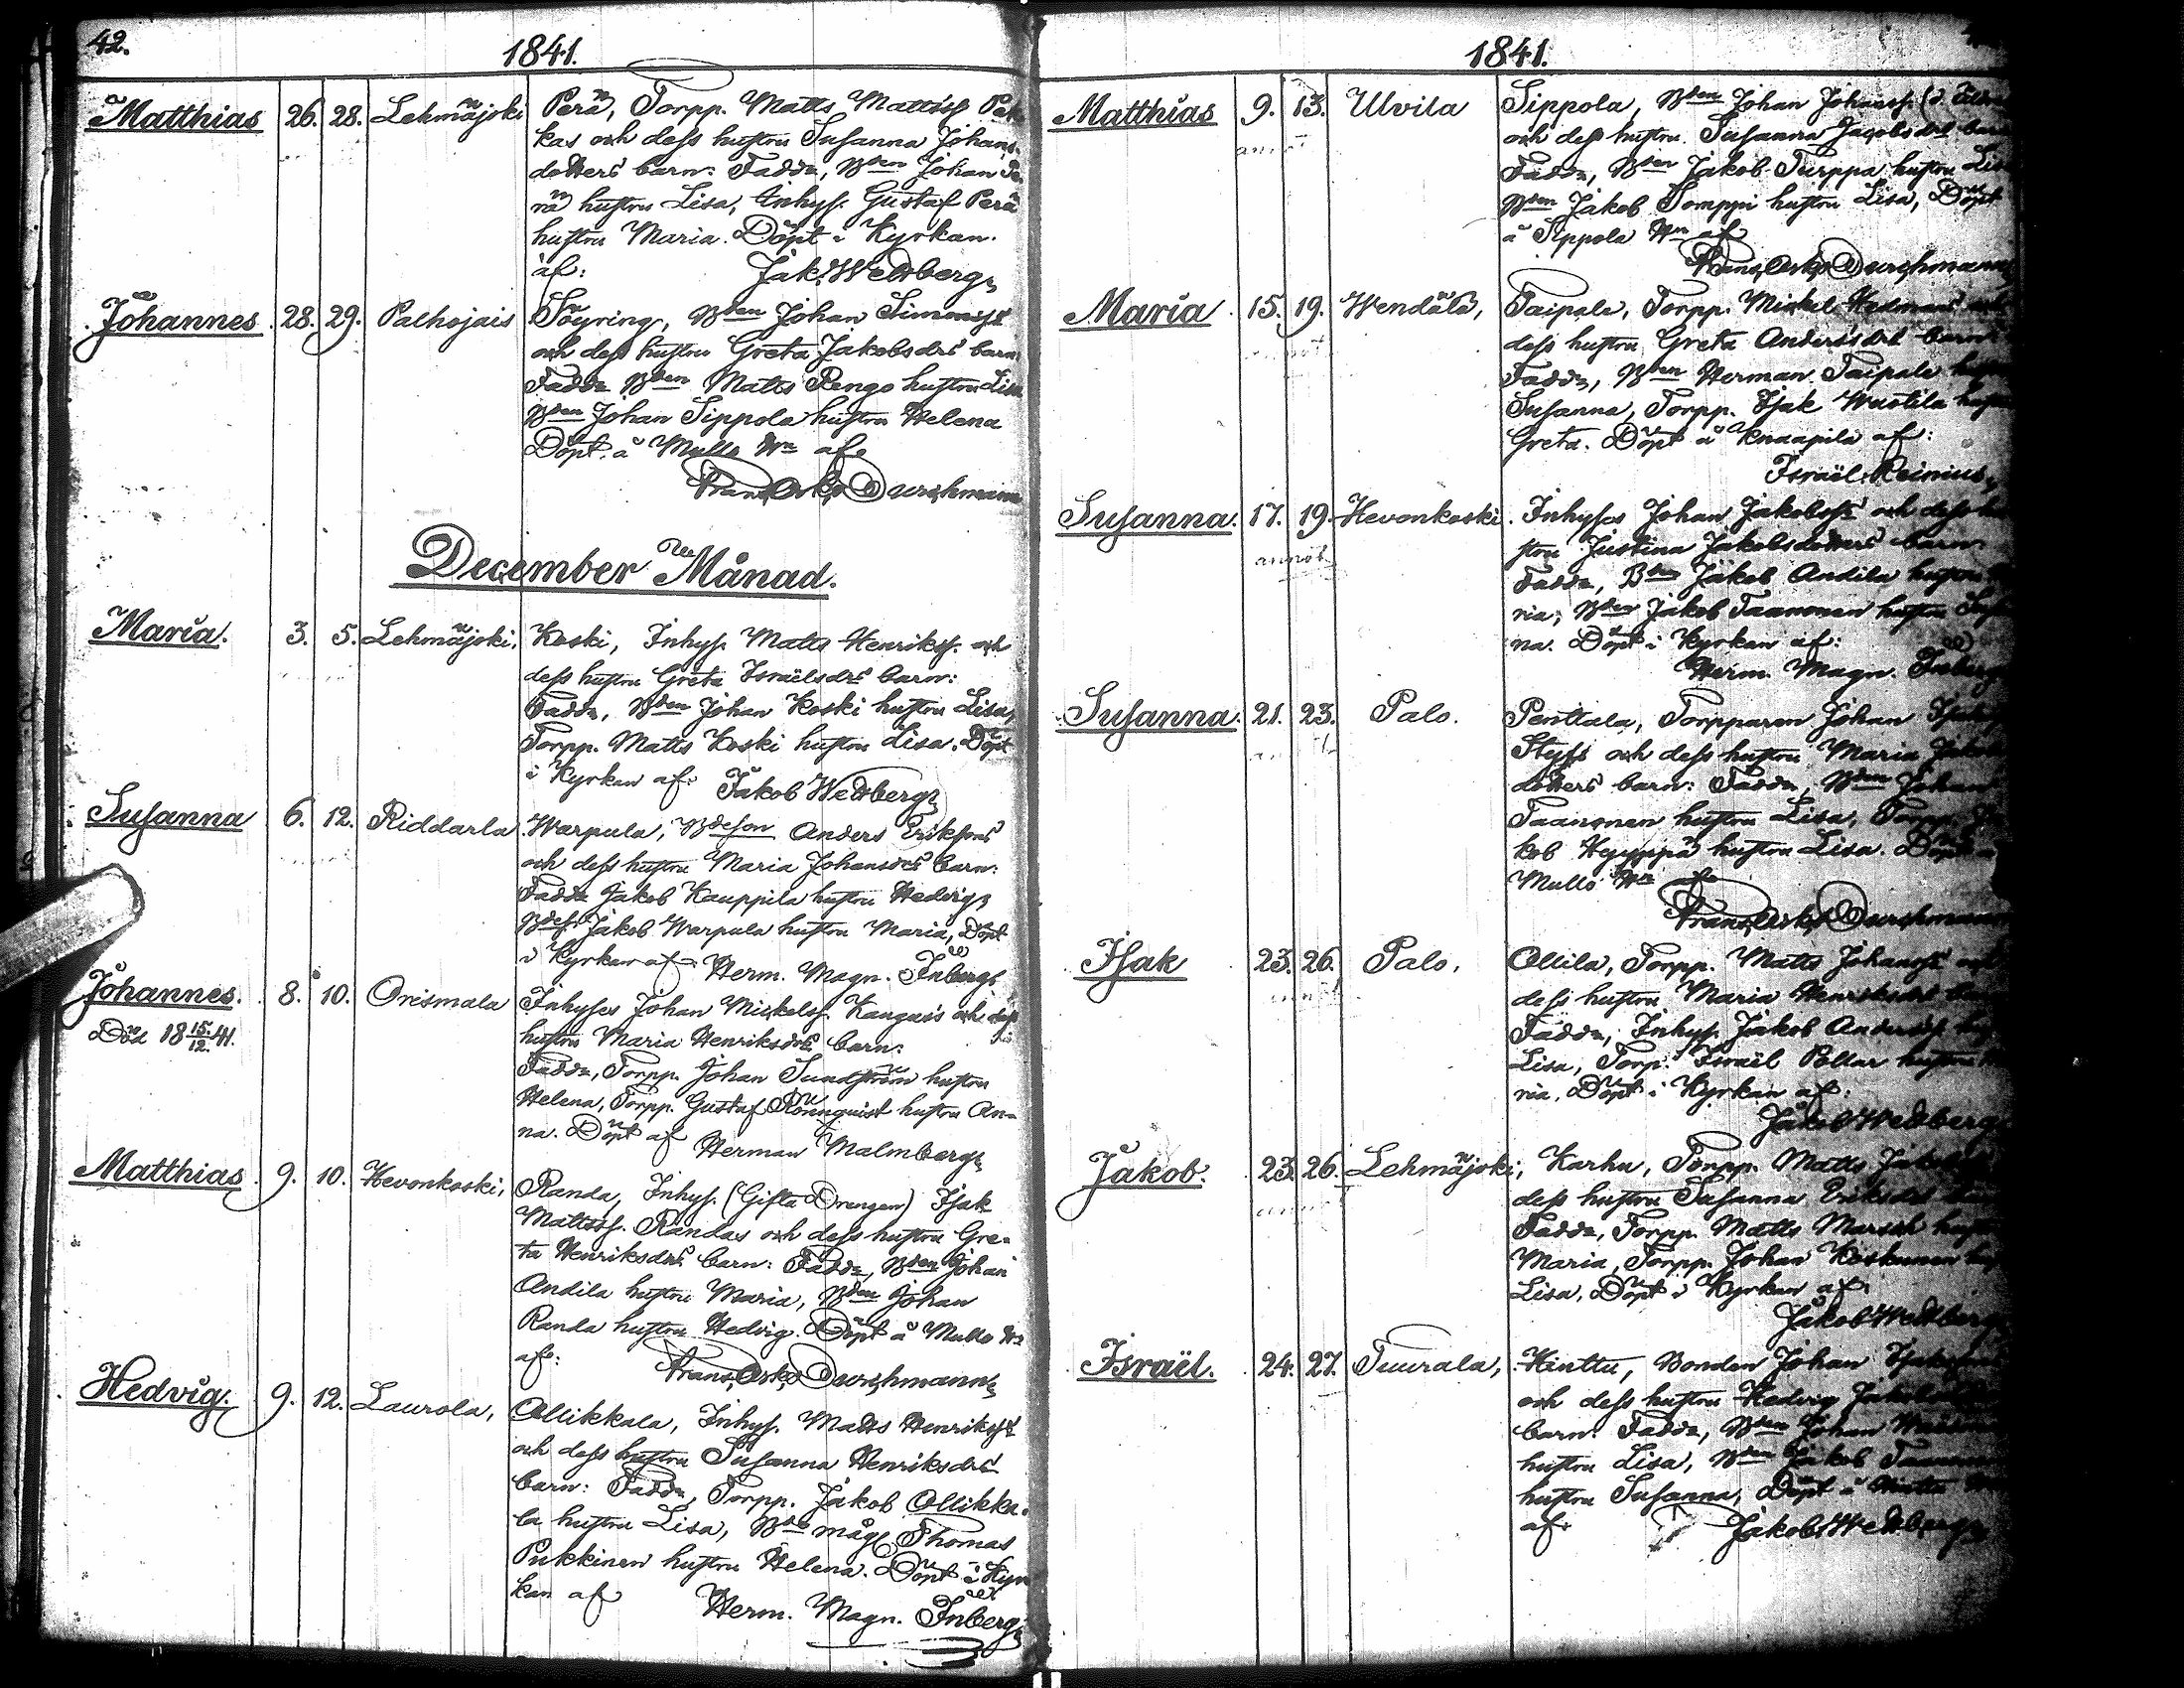 42.
1841.
Matthias 26. 28. Lehmäjoki Perä, Torpp. Matts Mattssß
kas och deß hustru Susanna Johans-
dotters barn: Fadd., Bden Johan
rä hustru Lisa, Inhys. Gustaf Perä
hustru Maria. Döpt i Kyrkan
af: Jak. Wedberg
Johannes 28. 29. Palhojais Söyring, Bden Johan Simonsß
och deß hustru Greta Jakobsdrs barn
Fadd. Bden Matts Rengo hustru Lisa
Bden Johan Sippola hustru Helena
Döpt å Mullo Hn af
Frans Osk. Durchmann
December Månad.
Maria. 3. 5. Lehmäjoki. Koski, Inhys. Matts Henrikss. och
deß hustru Greta Israelsdrs barn:
Fadd., Bden Johan Koski hustru Lisa,
Torpp. Matts Koski hustru Lisa. Döpt
i Kyrkan af: Jakob Wedberg
Susanna 6. 12. Riddarla Warpula, Bdeson Anders Eriksons
och deß hustru Maria Johansdrs barn:
Fadd. Jakob Kauppila hustru Hedvig,
Bdes. Jakob Warpula hustru Maria, Döpt
i Kyrkan af Herm. Magn. Inberg
Johannes. 8. 10. Orismala Inhyses Johan Mickelss. Kangais och deß
Död 18 15/12 41. hustru Maria Henriksdrs barn:
Fadd., Torpp. Johan Sundström hustru
Helena, Torpp. Gustaf Rönnquist hustru An-
na. Döpt af Herman Malmberg
Matthias 9. 10. Hevonkoski, Randa, Inhys. (Gifta Drengen) Isak
Mattss. Randas och deß hustru Gre-
ta Henriksdrs barn: Fadd., Bden Johan
Andila hustru Maria, Bden Johan
Randa hustru Hedvig. Döpt å Mullo Hn
af: Frans Osk. Durchmann
Hedvig. 9. 12. Laurola, Ollikkala, Inhys. Matts Henriksß
och deß hustru Susanna Henriksdrs
barn: Fadd., Torpp. Jakob Ollikka-
la hustru Lisa, Bde måg Thomas
Pukkinen hustru Helena. Döpt i Kyr
kan af Herm. Magn. Inberg
1841.
Matthias 9. 13. Ulvila Sippola, Bden Johan Johanss.
och deß hustru Susanna Jacobsdrs
Fadd., Bden Jakob Turppa hustru
Bden Jakob Tomppi hustru Lisa, Döpt
å Sippola Hn af
Frans Osk. Durchmann
Maria 15. 19. Wendälä, Taipale, Torpp. Mickel Hedmans
deß hustru Greta Andersdrs barn
Fadd., Bden Herman Taipale
Susanna, Torpp. Isak Wästilä
Greta. Döpt å Knaapila af:
Israel Reinius
Susanna. 17. 19. Hevonkoski. Inhyses Johan Jakobsß och deß hu
stru Justina Jakobsdotters barn
Fadd., Bden Jakob Andila hustru
ria, Bden Jakob Taanonen hustru
na. Döpt i Kyrkan af:
Herm. Magn. Inberg
Susanna. 21. 23. Palo. Penttala, Torpparen Johan
Styfs och deß hustru Maria
dotters barn: Fadd., Bden Johan
Taanonen hustru Lisa, Torpp.
kob Hyyppä hustru Lisa. Döpt
Mullo Hn af
Frans Osk. Durchmann
Isak 23. 26. Palo, Ollila, Torpp. Matts Johansß
deß hustru Maria Henriksdrs
Fadd., Inhys. Jakob Anderss.
Lisa, Torp. Israel Pollar hustru
ria. Döpt i Kyrkan af:
Jakob Wedberg
Jakob. 23. 26. Lehmäjoki, Karhu, Torpp. Matts
deß hustru Susanna Eriksdrs
Fadd., Torpp. Matts Marsch
Maria, Torpp. Johan Koskunen
Lisa, Döpt i Kyrkan af
Jakob Wedberg
Israel. 24. 27. Tuurala, Hinttu, Bonden Johan
och deß hustru Hedvig
barn: Fadd., Bden Johan
hustru Lisa, Bden Jakob
hustru Susanna, Döpt å Hinttu
af: Jakob Wedberg